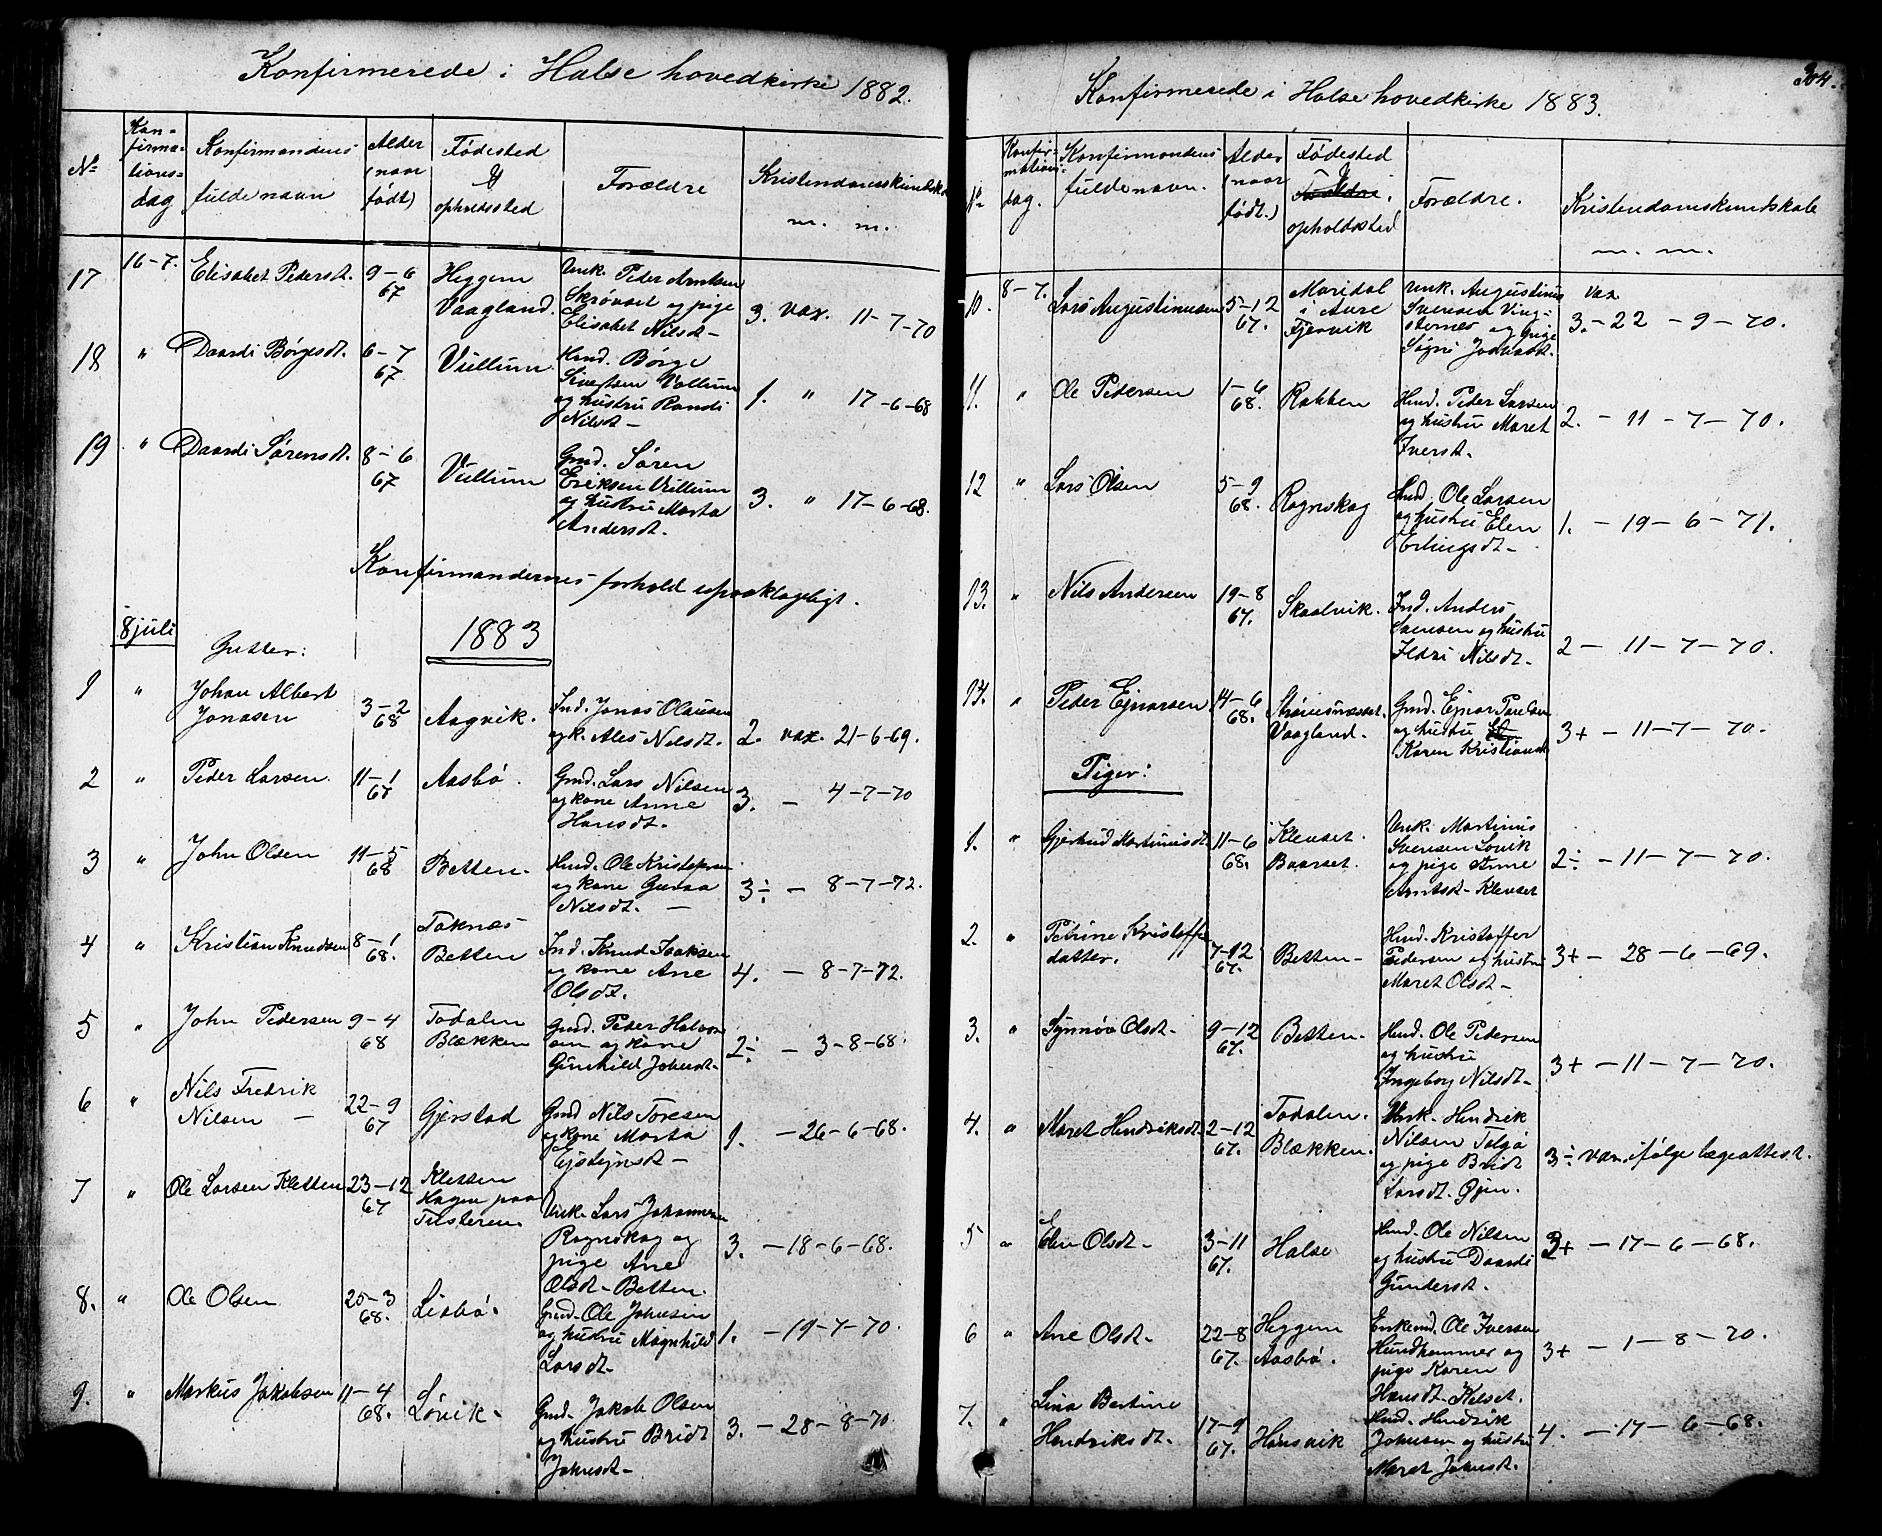 Konfirmerede i Halse hovedkirke 1882.
No
Kon-
firma-
tions-
dag
Konfirmandens
fulde navn
Alder
(naar
født)
Fødested
&
opholdssted
Forældre
Kristendomskundsk
m. m.
17 16-7. Elisabet Pedersdt. 9-6
67
Heggem
Vaagland.
Unk. Peder Arntsen
Skrøvset og pige
Elisabet Nilsdt-
3. vax. 11-7-70
18 " Daardi Børgesdt. 6-7
67
Vullum
Hmd. Børge
Sivertsen Vullum
og hustru Randi
Nilsdt-
1. " 17-6-68
19 " Daardi Sørensdt. 8-6
67
Vullum
Gmd. Søren
Eriksen Vullum
og hustru Marta
Andersdt.
3. " 17-6-68.
Konfirmandernes forhold upaaklageligt.
1883
8 juli
Gutter:
1 " Johan Albert
Jonasen
3-2
68
Aagvik.
Ind. Jonas Olausen
og k. Ales Nilsdt.
2. vax. 21-6-69.
2 " Peder Larsen. 11-1
67
Aasbø.
Gmd. Lars Nilsen
og kone Anne
Hansdt.
3. - 4-7-70
3 " John Olsen 11-5
68
Betten.
Hmd. Ole Kristofersen
og kone Guraa
Nilsdt. -
3÷ - 8-7-72.
4 " Kristian Knudsen 8-1
68.
Toknæs
Betten
Ind. Knud Isaksen
og kone Ane
Olsdt.
4. - 8-7-72.
5 " John Pedersen 9-4
68
Todalen
Blækken
Gmd. Peder Halvor
sen og kone
Gunhild Johnsdt-
2÷ - 3-8-68.
6 " Nils Fredrik
Nilsen -
22-9
67
Gjerstad
Gmd Nils Toresen
og kone Marta
Ejstejnsdt-
1. - 26-6-68.
7 " Ole Larsen Kletten 23-12
67
Kletten
Hagen paa
Tusteren
Unk. Lars Johannesen
Rognskog og
pige Ane
Olsdt-Betten.
3. - 18-6-68.
8. " Ole Olsen 25-3
68.
Lisbø.
Gmd. Ole Johnsen
og hustru Magnhild
Larsdt-
1. - 19-7-70.
9. " Markus Jakobsen 11-4
68.
Løvik-
Gmd. Jakob Olsen
og hustru Bridt
Johnsdt-
3. - 28-8-70.
304.
Konfirmerede i Halse hovedkirke 1883.
No
Konfir-
mations
dag.
Konfirmandens
fulde navn.
Alder
(naar
født.)
Fødested
&
Forældre.
opholdssted
Forældre.
Kristendomskundskab
m. m.
10. 8-7. Lars Augustinusen 5-12
67.
Maridal
i Aure
Fjærvik
Unk. Augustinus
Svensen Ving-
sternes og pige
Søgni Johnsdt.
vax.
3. - 22-9-70.
11. " Ole Pedersen 1-6
68.
Rakken
Hmd. Peder Larsen
og hustru Maret
Iversdt.
2. - 11-7-70.
12 " Lars Olsen 5-9
68.
Rognskog
Hmd. Ole Larsen
og hustru Elen
Erlingsdt-
1. - 19-6-71.
13. " Nils Andersen 19-8
67.
Skaalvik.
Ind. Anders
Svensen og hustru
Ildri Nilsdt-
2 - 11-7-70.
14. " Peder Ejnarsen 14-6
68.
Strømsnæsset.
Vaagland.
Gmd. Ejnar Paulsen
og hustru
Karen Kristiansdt
3+ - 11-7-70.
Piger:
1. " Gjertrud Martinusdt 11-6
68.
Klevset.
Baarset.
Unk. Martinus
Svensen Løvik
og pige Anne
Arntsdt-Klevset
2÷ - 11-7-70.
2. " Petrine Kristoffer
datter.
7-12
67.
Betten-
Hmd. Kristoffer
Pedersen og hustru
Maret Olsdt-
3+ - 28-6-69.
3. " Synnøv Olsdt- 9-12
67.
Betten-
Hmd. Ole Pedersen
og hustru
Ingeborg Nilsdt-
3+ - 11-7-70.
4. " Maret Hendriksdt 2-12
67.
Todalen.
Blækken.
Unk. Hendrik
Nilsen Tolgø
og pige Bridt
Larsdt. Øjen.
3÷ vax. ifølge lægeattest.
5 " Elen Olsdt- 3-11
67.
Halse
Hmd. Ole Nilsen
og hustru Daardi
Gundersdt.
3+ - 17-6-68.
6 " Ane Olsdt- 22-8
67.
Heggem
Aasbø.
Enkemd. Ole Iversen
Hundhammer og
pige Karen
Hansdt-Kilset.
3+ - 1-8-70.
7. " Lina Bertine
Hendriksdt.
17-9
67.
Hansvik
Hmd. Hendrik
Johnsen og hustru
Maret Johnsdt.
4. - 17-6-68.